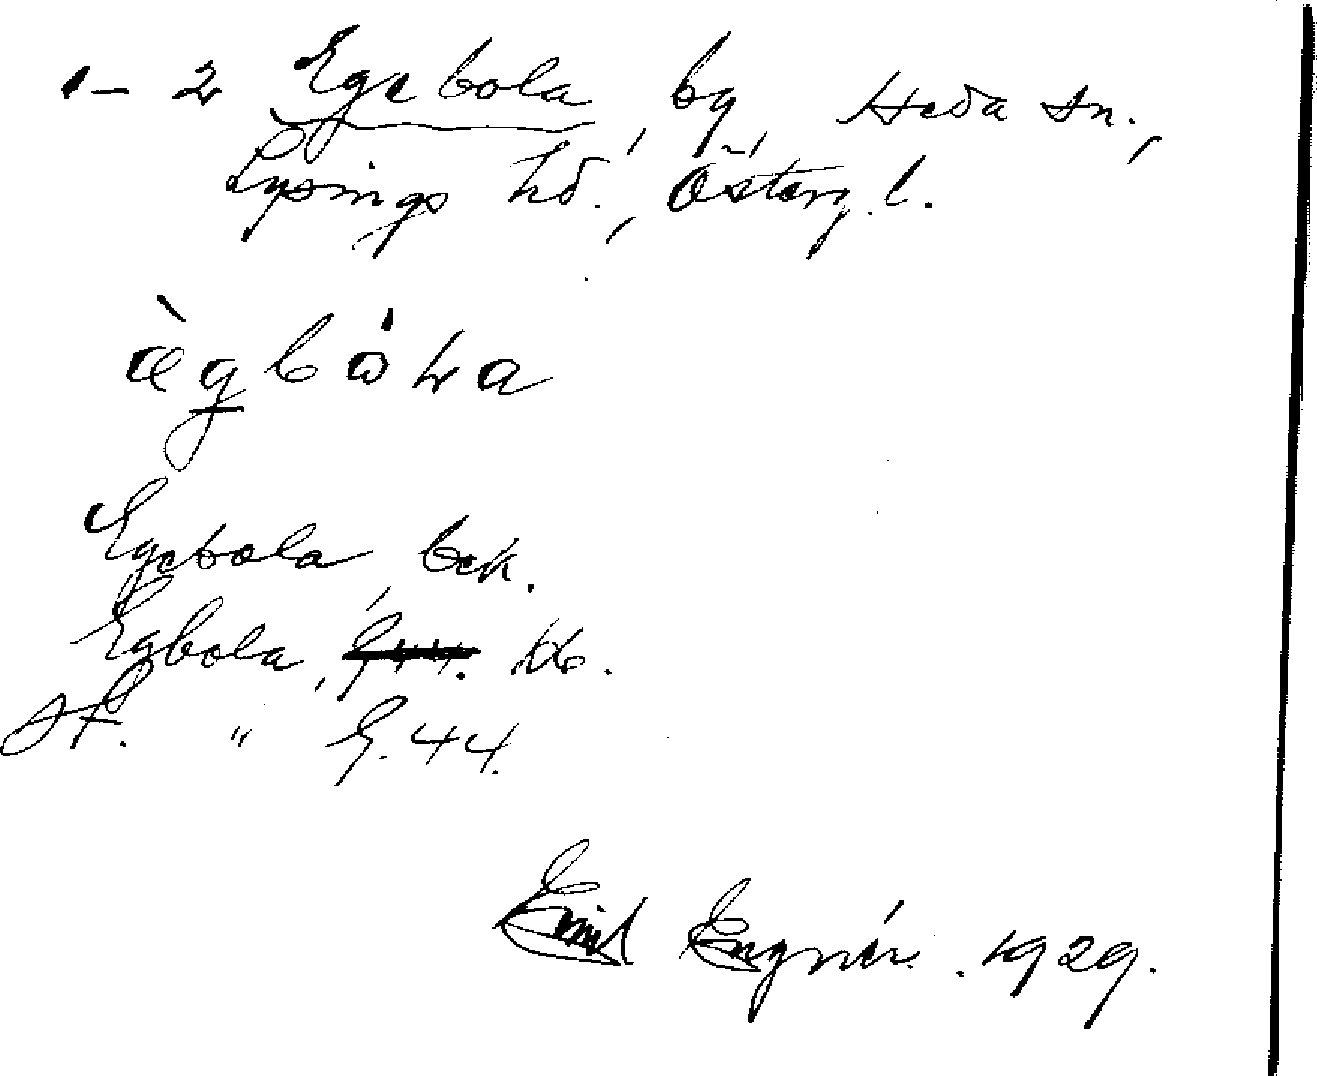 1-2 Egebola, by, Heda sn.,
Lysings hd., Österg.l.
ægbòla
Egebola, bek.
Egbola, G. 44. kb.
St. " G. 44.
Emil Engnér. 1929.